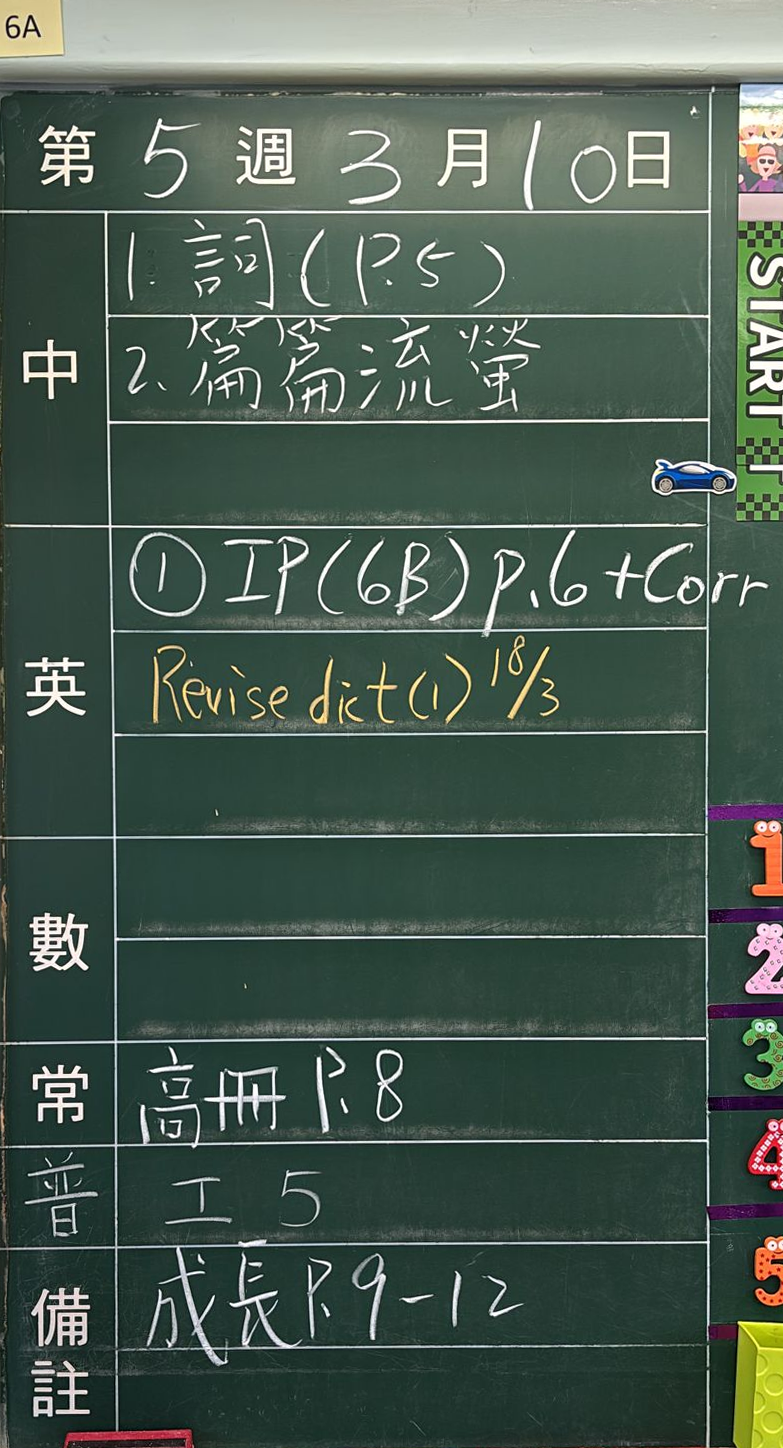 6A
第5週3月10日
中
1. 詞(P.5)
2. 篇篇流螢
英
① IP(6B) p.6 +Corr
Revise dict(1) 18/3
數
常
高冊 P.8
普
工5
備註
成長P.9-12
START
1
2
3
4
5